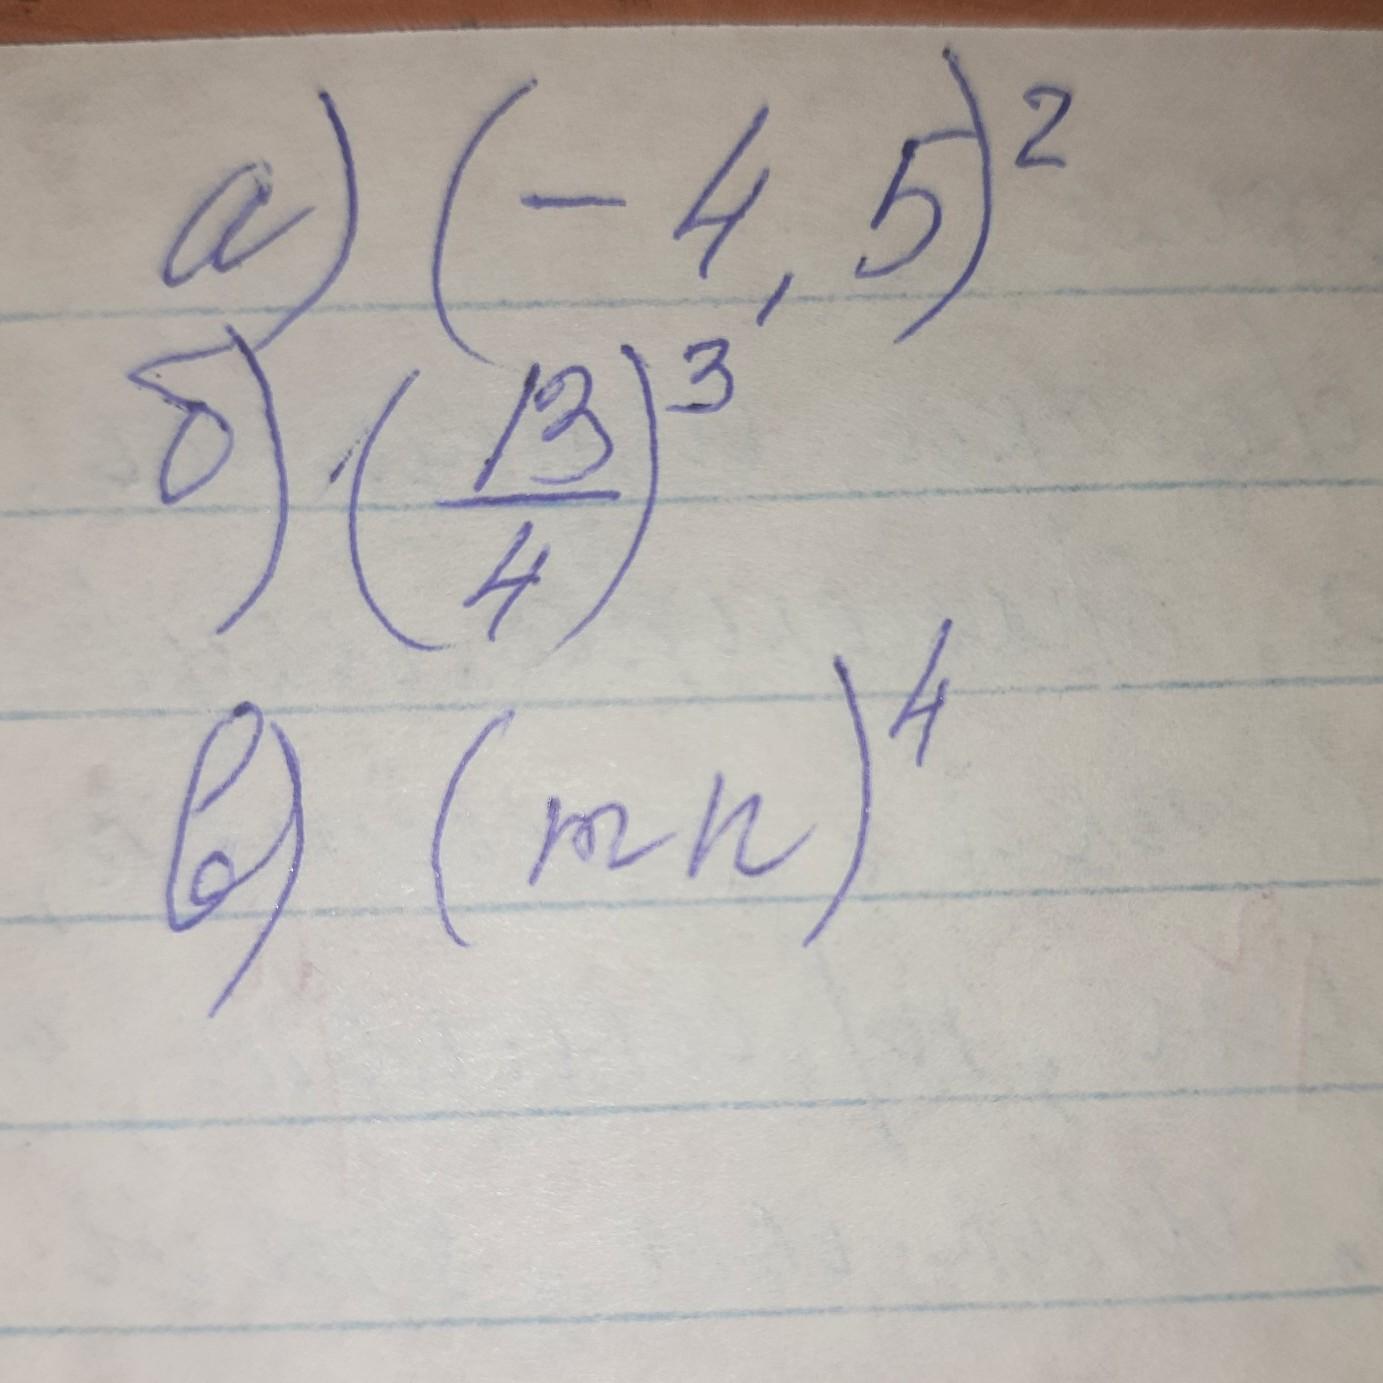 а) (-4,5)²
б) (13/4)³
в) (mn)⁴